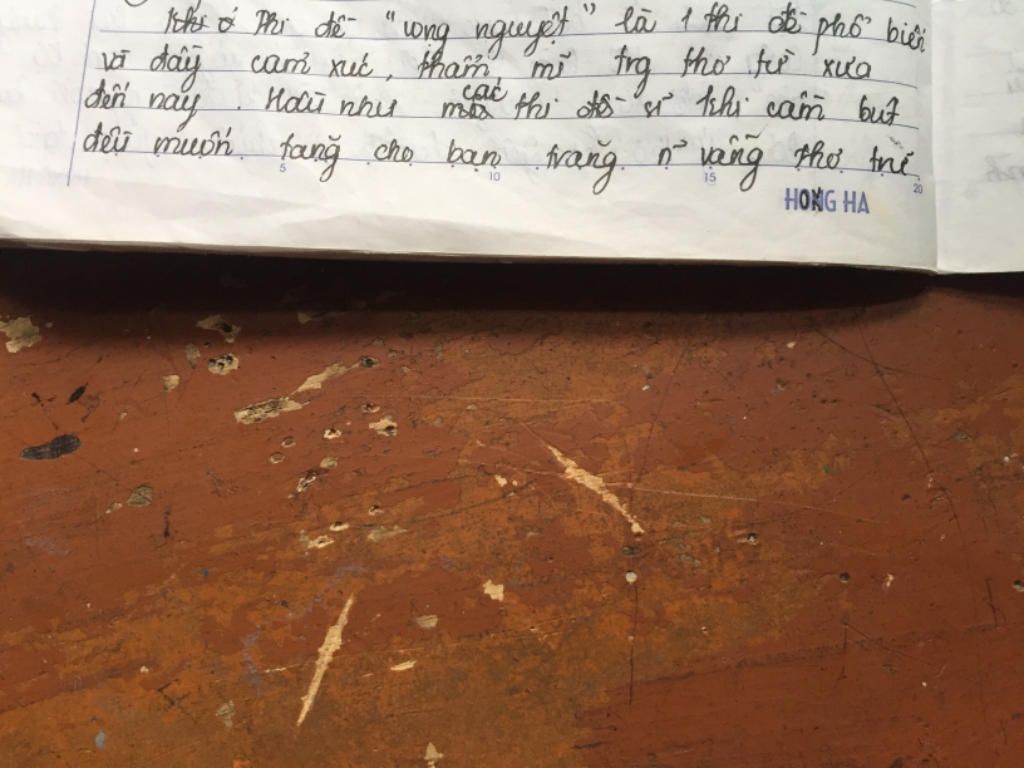 Thi đề "vọng nguyệt" là 1 thi đề phổ biến
và đầy cảm xúc, thẩm mĩ trg thơ từ xưa
đến nay. Hầu như các thi đề sĩ khi cầm bút
đều muốn tặng cho bạn trăng n~ vầng thơ trữ
5 10 15 20
HONG HA